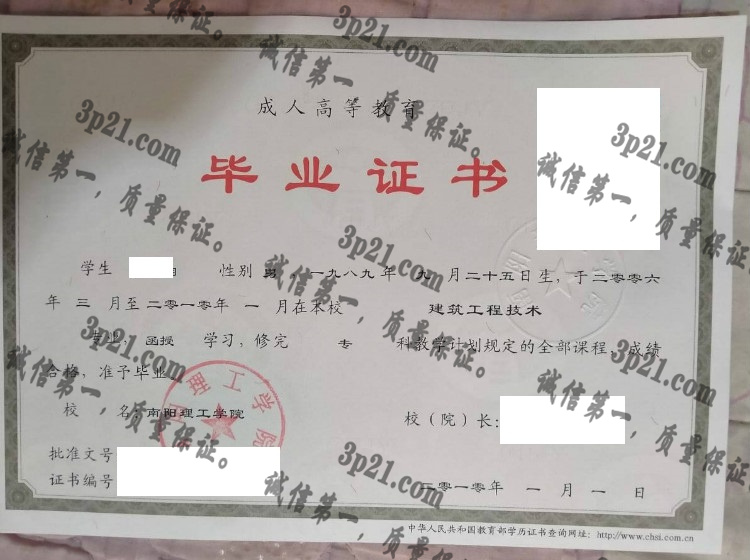 成人高等教育
毕业证书
学生 性别 男 ,一九八九年 九 月二十五日生,于二零零六
年 三 月至二零一零年 一 月在本校 建筑工程技术
专业, 函授 学习,修完 专 科教学计划规定的全部课程,成绩
合格,准予毕业
校 名:南阳理工学院 校(院)长:
批准文号
证书编号
二零一零年 一 月 一 日
中华人民共和国教育部学历证书查询网址: http://www.chsi.com.cn
理工学院
3p21.com
诚信第一,质量保证。
3p21.com
诚信第一,质量保证。
3p21.com
诚信第一,质量保证。
3p21.com
诚信第一,质量保证。
3p21.com
诚信第一,质量保证。
3p21.com
诚信第一,质量保证。
3p21.com
诚信第一,质量保证。